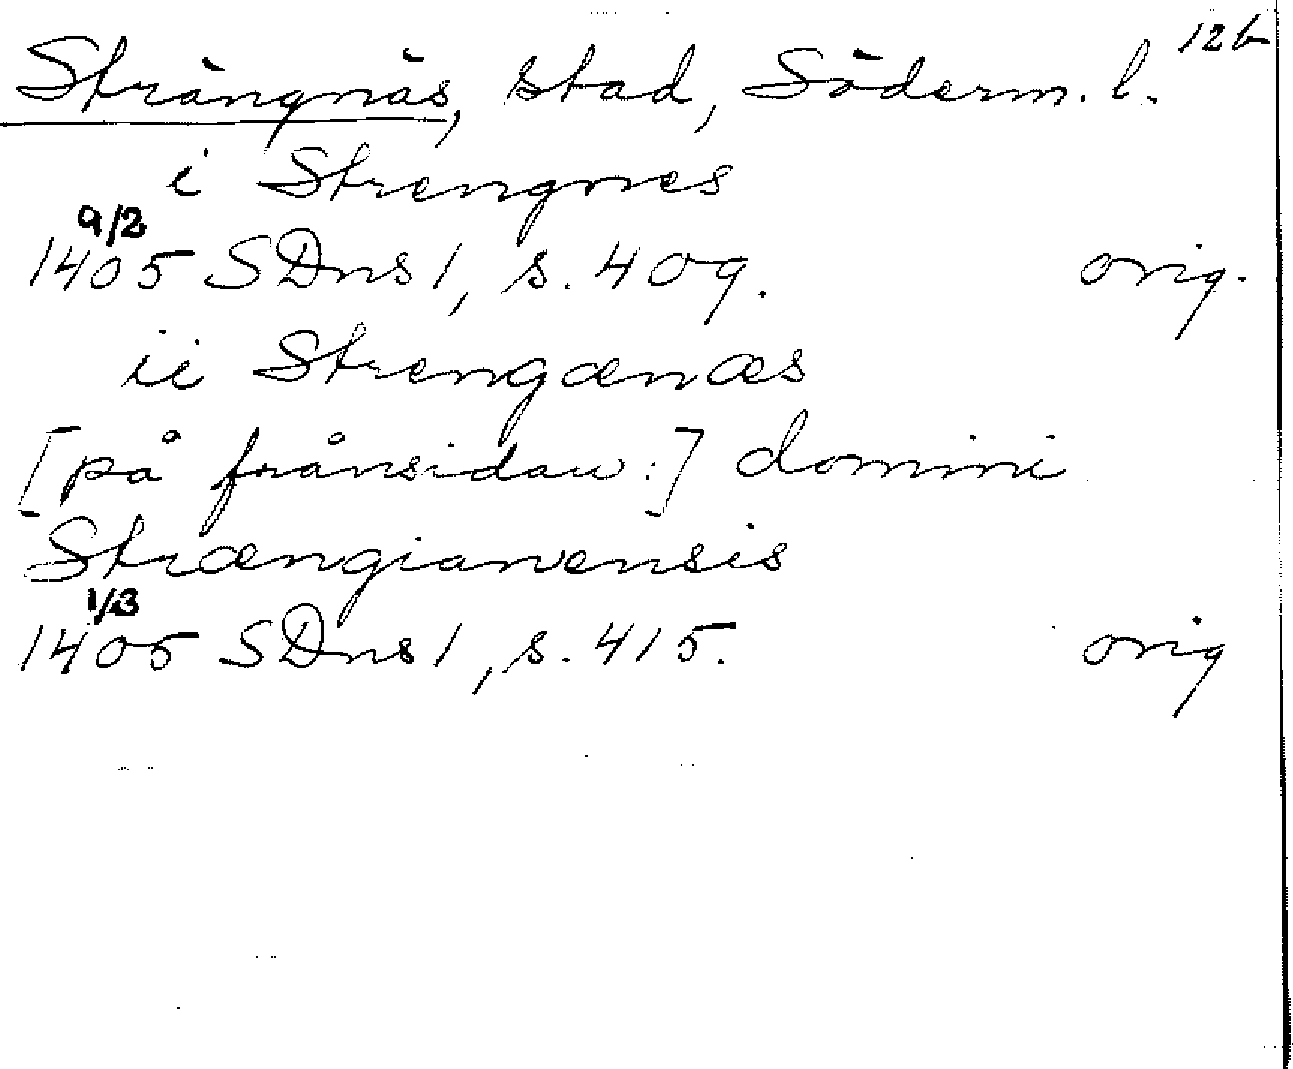 12b
Strängnäs, stad, Söderm. l.
i Strengnes
9/2
1405 SDns 1, s. 409. orig.
ii Strengænæs
[på frånsidan:] domini
Strængianensis
1/3
1405 SDns 1, s. 415. orig